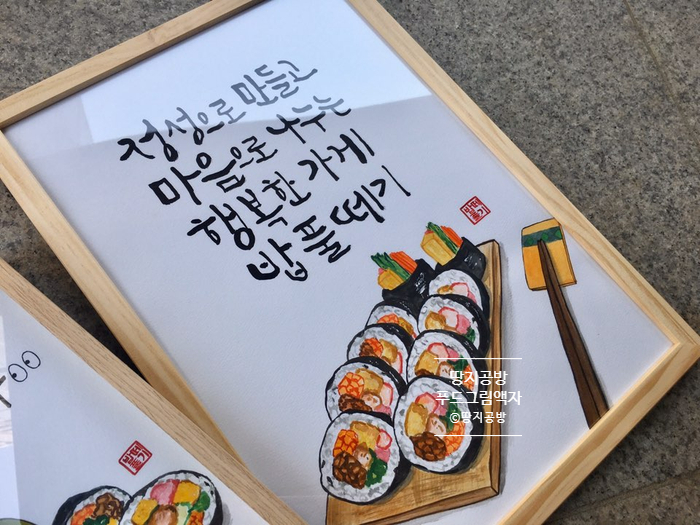 정성으로 만들고
마음으로 나누는
행복한 가게
밥풀떼기
땅지공방
푸드그림액자
©땅지공방